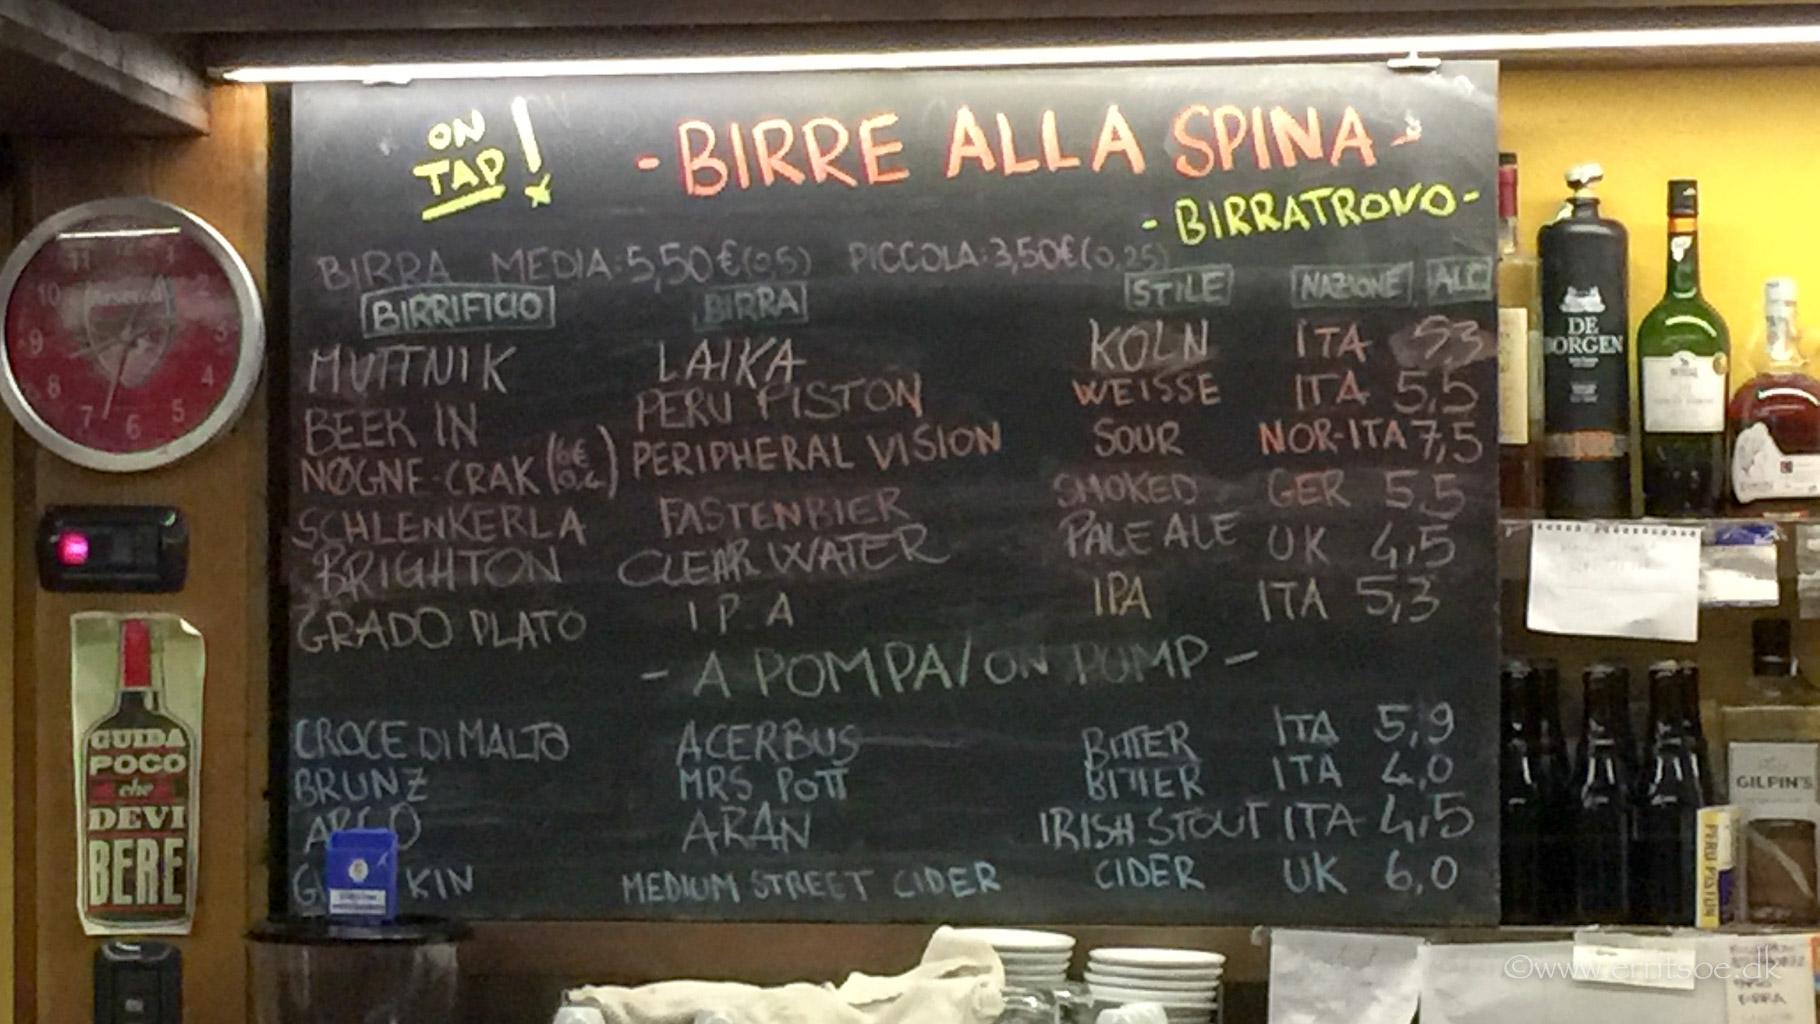 ON
TAP!
- BIRRE ALLA SPINA -
- BIRRATROVO -
BIRRA MEDIA: 5,50€ (0,5) PICCOLA: 3,50€ (0,25)
BIRRIFICIO BIRRA STILE NAZIONE ALC
MUTTNIK LAIKA KOLN ITA 5,3
BEEK IN PERU PISTON WEISSE ITA 5,5
NØGNE-CRAK (6€ 0,4) PERIPHERAL VISION SOUR NOR-ITA 7,5
SCHLENKERLA FASTENBIER SMOKED GER 5,5
BRIGHTON CLEAR WATER PALE ALE UK 4,5
GRADO PLATO I.P.A IPA ITA 5,3
- A POMPA/ON PUMP -
CROCE DI MALTO ACERBUS BITTER ITA 5,9
BRUNZ MRS POTT BITTER ITA 4,0
ARAN IRISH STOUT ITA 4,5
KIN MEDIUM STREET CIDER CIDER UK 6,0
Arsenal
10 9 8 7 6 5 4 3 2 1
GUIDA
POCO
che
DEVI
BERE
DE
BORGEN
GILPIN'S
PERU PISTON
BIRRA
©www.erritsoe.dk